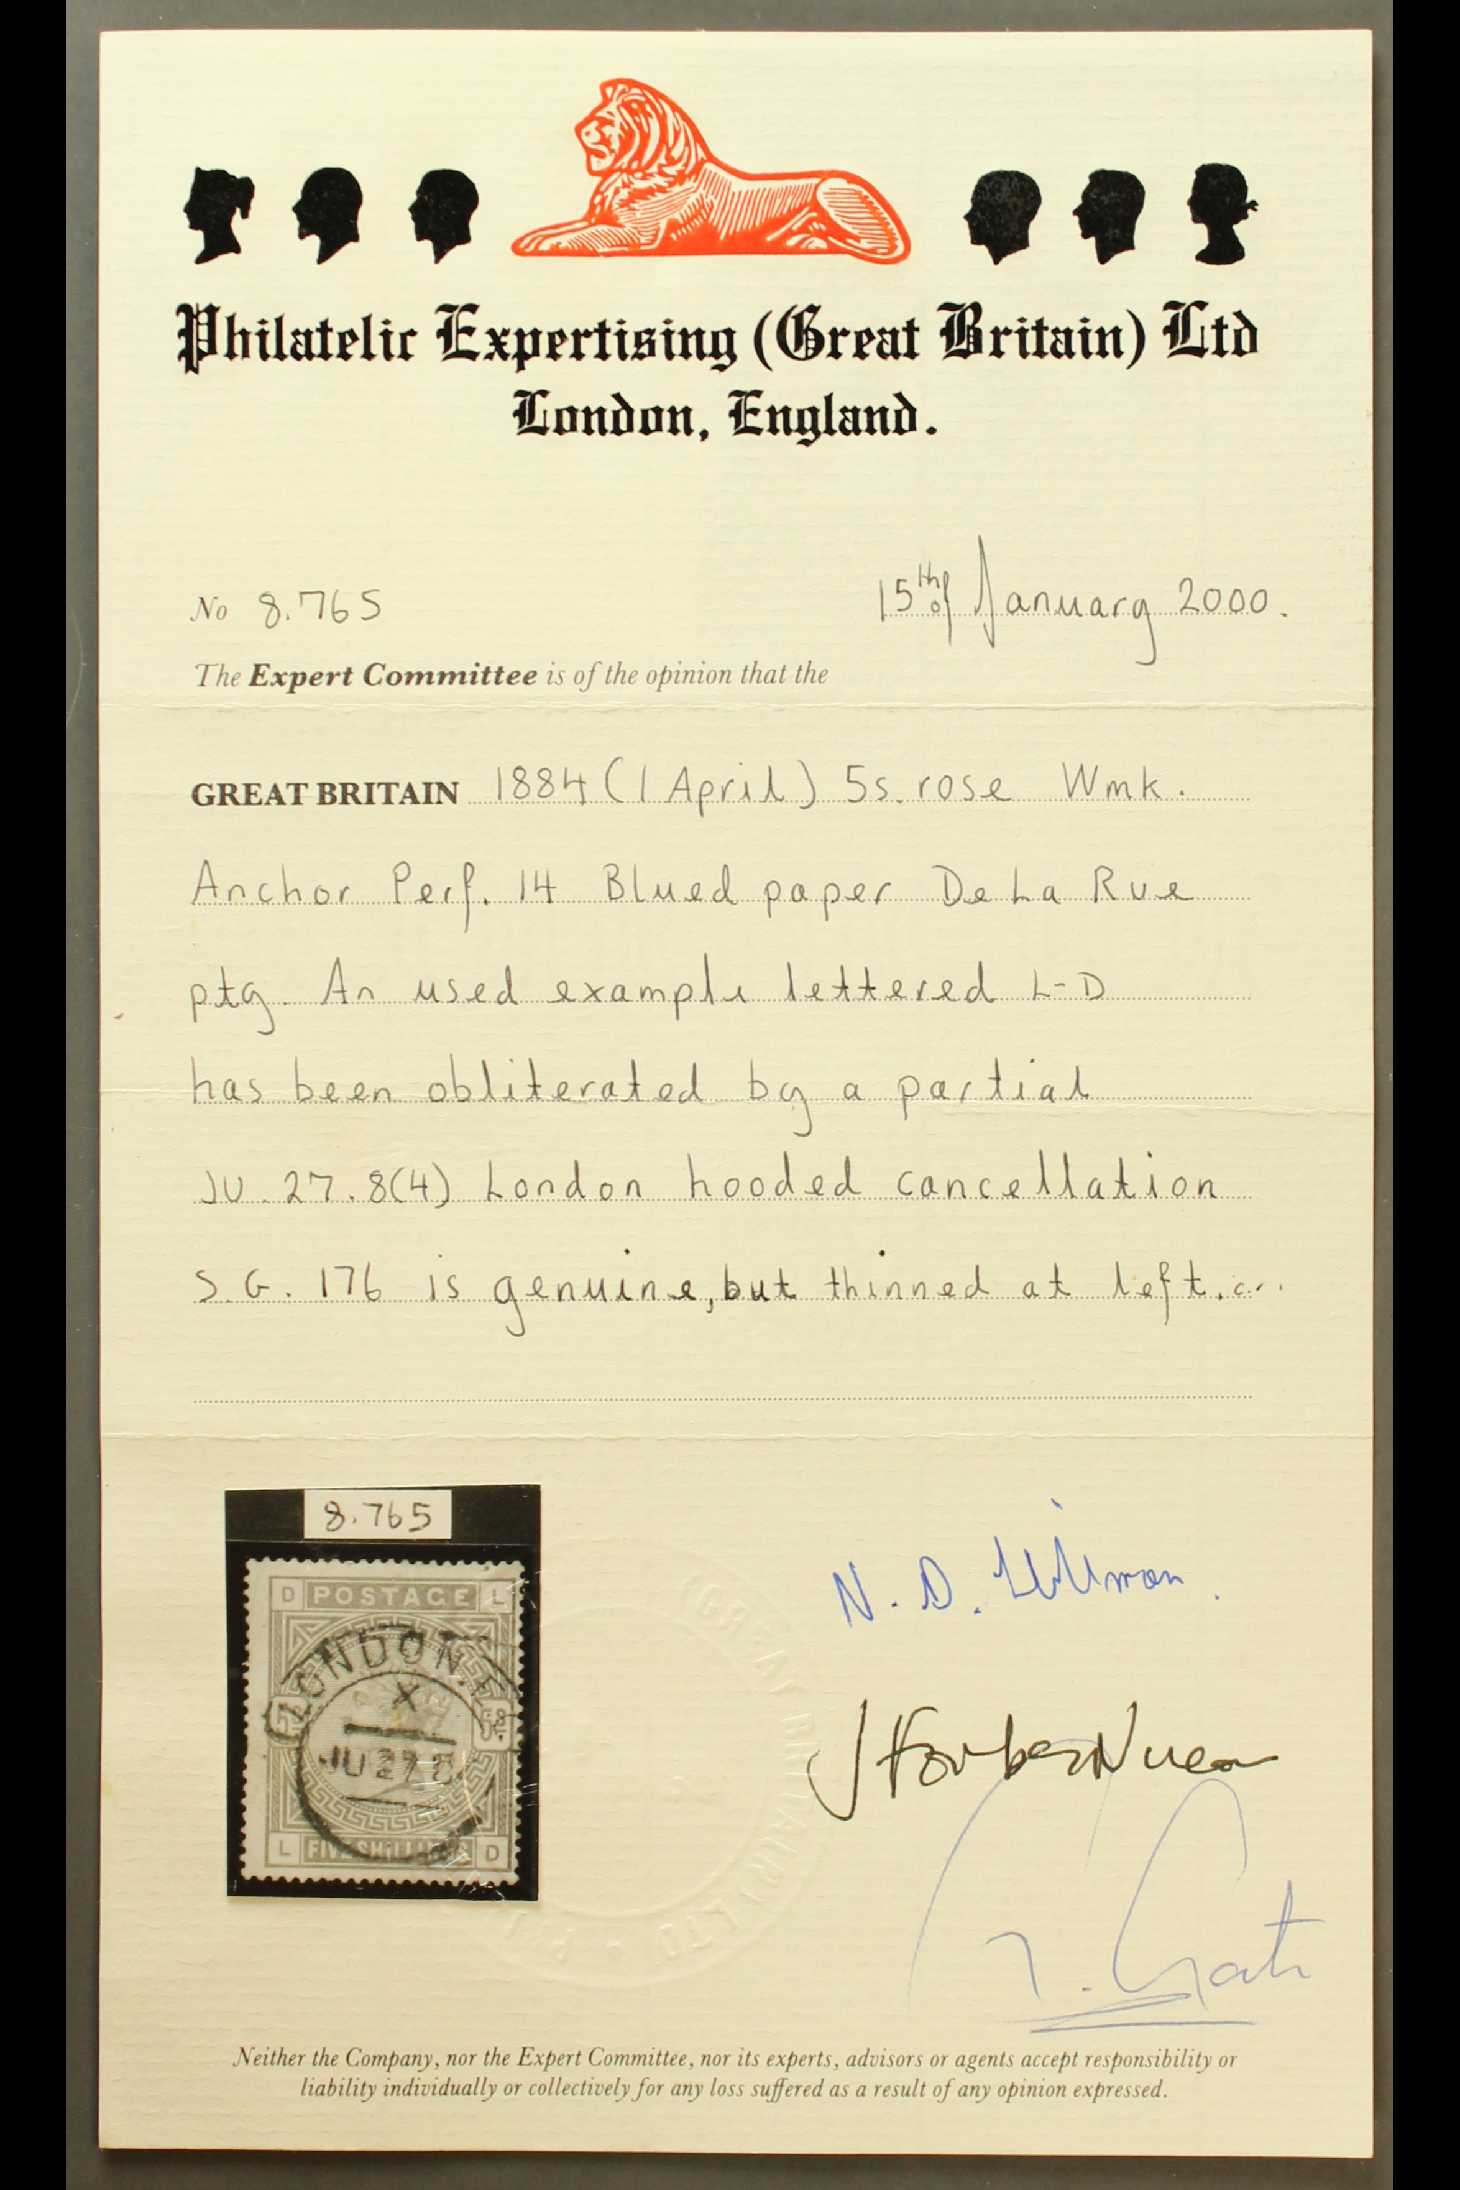 Philatelic Expertising (Great Britain) Ltd
London, England.
No 8.765
15th of January 2000.
The Expert Committee is of the opinion that the
GREAT BRITAIN 1884 (1 April) 5s. rose Wmk.
Anchor Perf. 14 Blued paper De La Rue
ptg. An used example lettered L-D
has been obliterated by a partial
JU. 27. 8(4) London hooded cancellation
S.G. 176 is genuine, but thinned at left.
8.765
D POSTAGE L
LONDON.
X
JU 27 8
L FIVE SHILLINGS D
(GREAT BRITAIN) LTD
N. D. Hillman.
Neither the Company, nor the Expert Committee, nor its experts, advisors or agents accept responsibility or
liability individually or collectively for any loss suffered as a result of any opinion expressed.